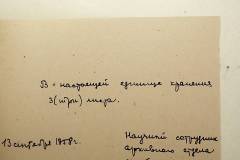 В настоящей единице хранения
3 (три) листа.
13 сентября 1958г.
Научный сотрудник
архивного отдела